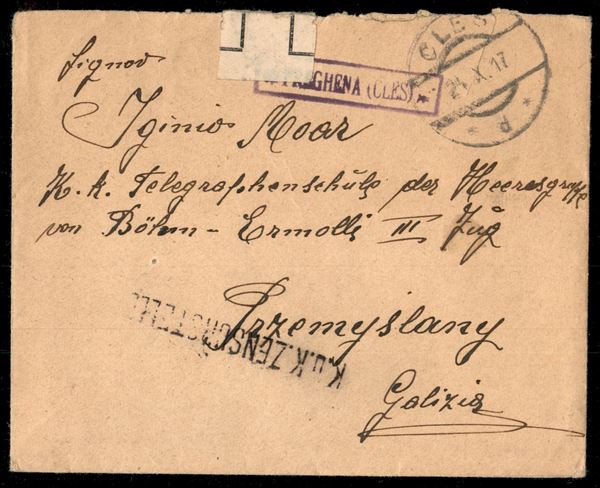 CLES
24. X. 17
PREGHENA (CLES)
Signor
Iginio Moar
K. k. Telegraphenschule der Heeresgruppe
von Böhm-Ermolli III Zug
Przemyslany
K.u.K. ZENSURSTELLE
Galizia